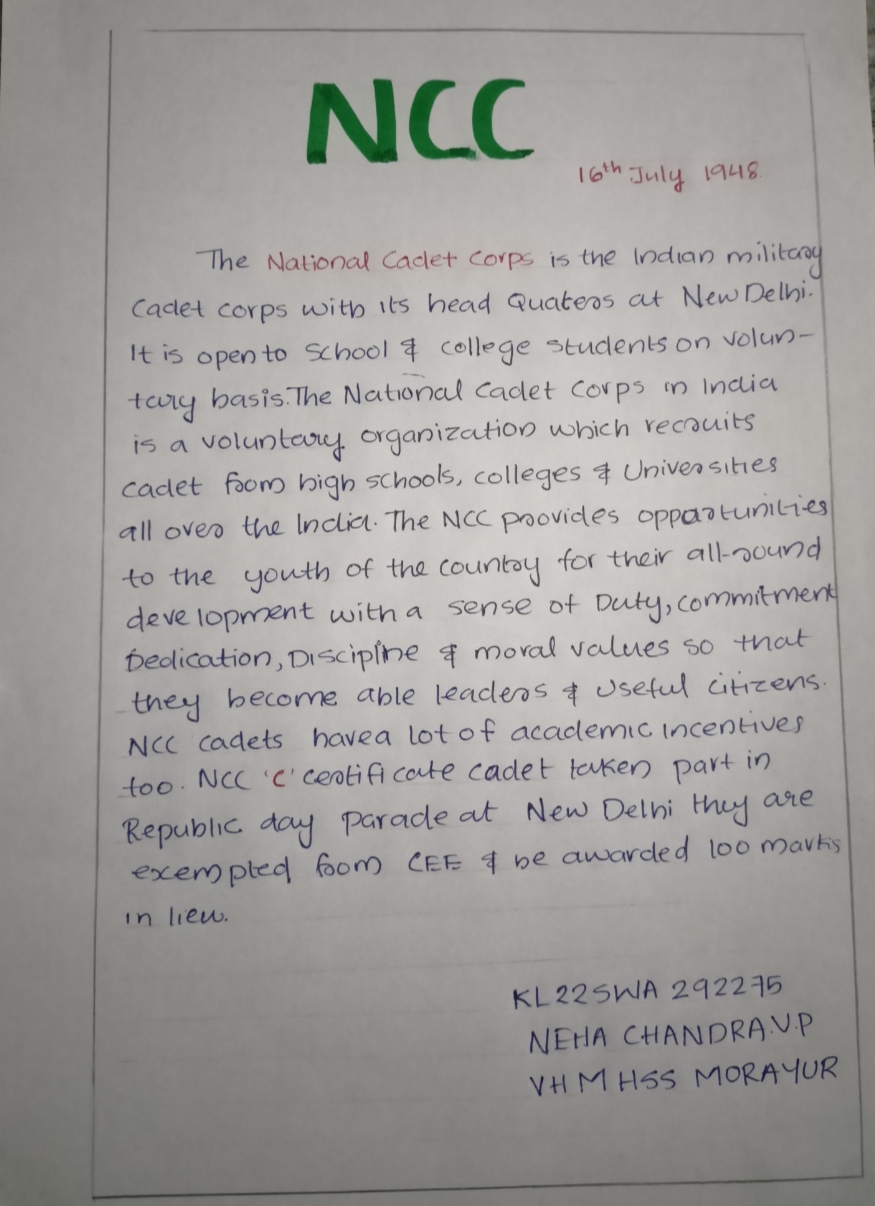 NCC
16th July 1948
The National Cadet Corps is the Indian military
Cadet corps with its head Quaters at New Delhi.
It is open to School & college students on volun-
tary basis. The National Cadet Corps in India
is a voluntary organization which recruits
cadet from high schools, colleges & Universities
all over the India. The NCC provides oppartunities
to the youth of the country for their all-round
development with a sense of Duty, commitment
Dedication, Discipline & moral values so that
they become able leaders & useful citizens.
NCC cadets have a lot of academic incentives
too. NCC 'C' certificate cadet taken part in
Republic day parade at New Delhi they are
exempted from CEE & be awarded 100 marks
in lieu.
KL22SWA 292275
NEHA CHANDRA.V.P
VHMHSS MORAYUR